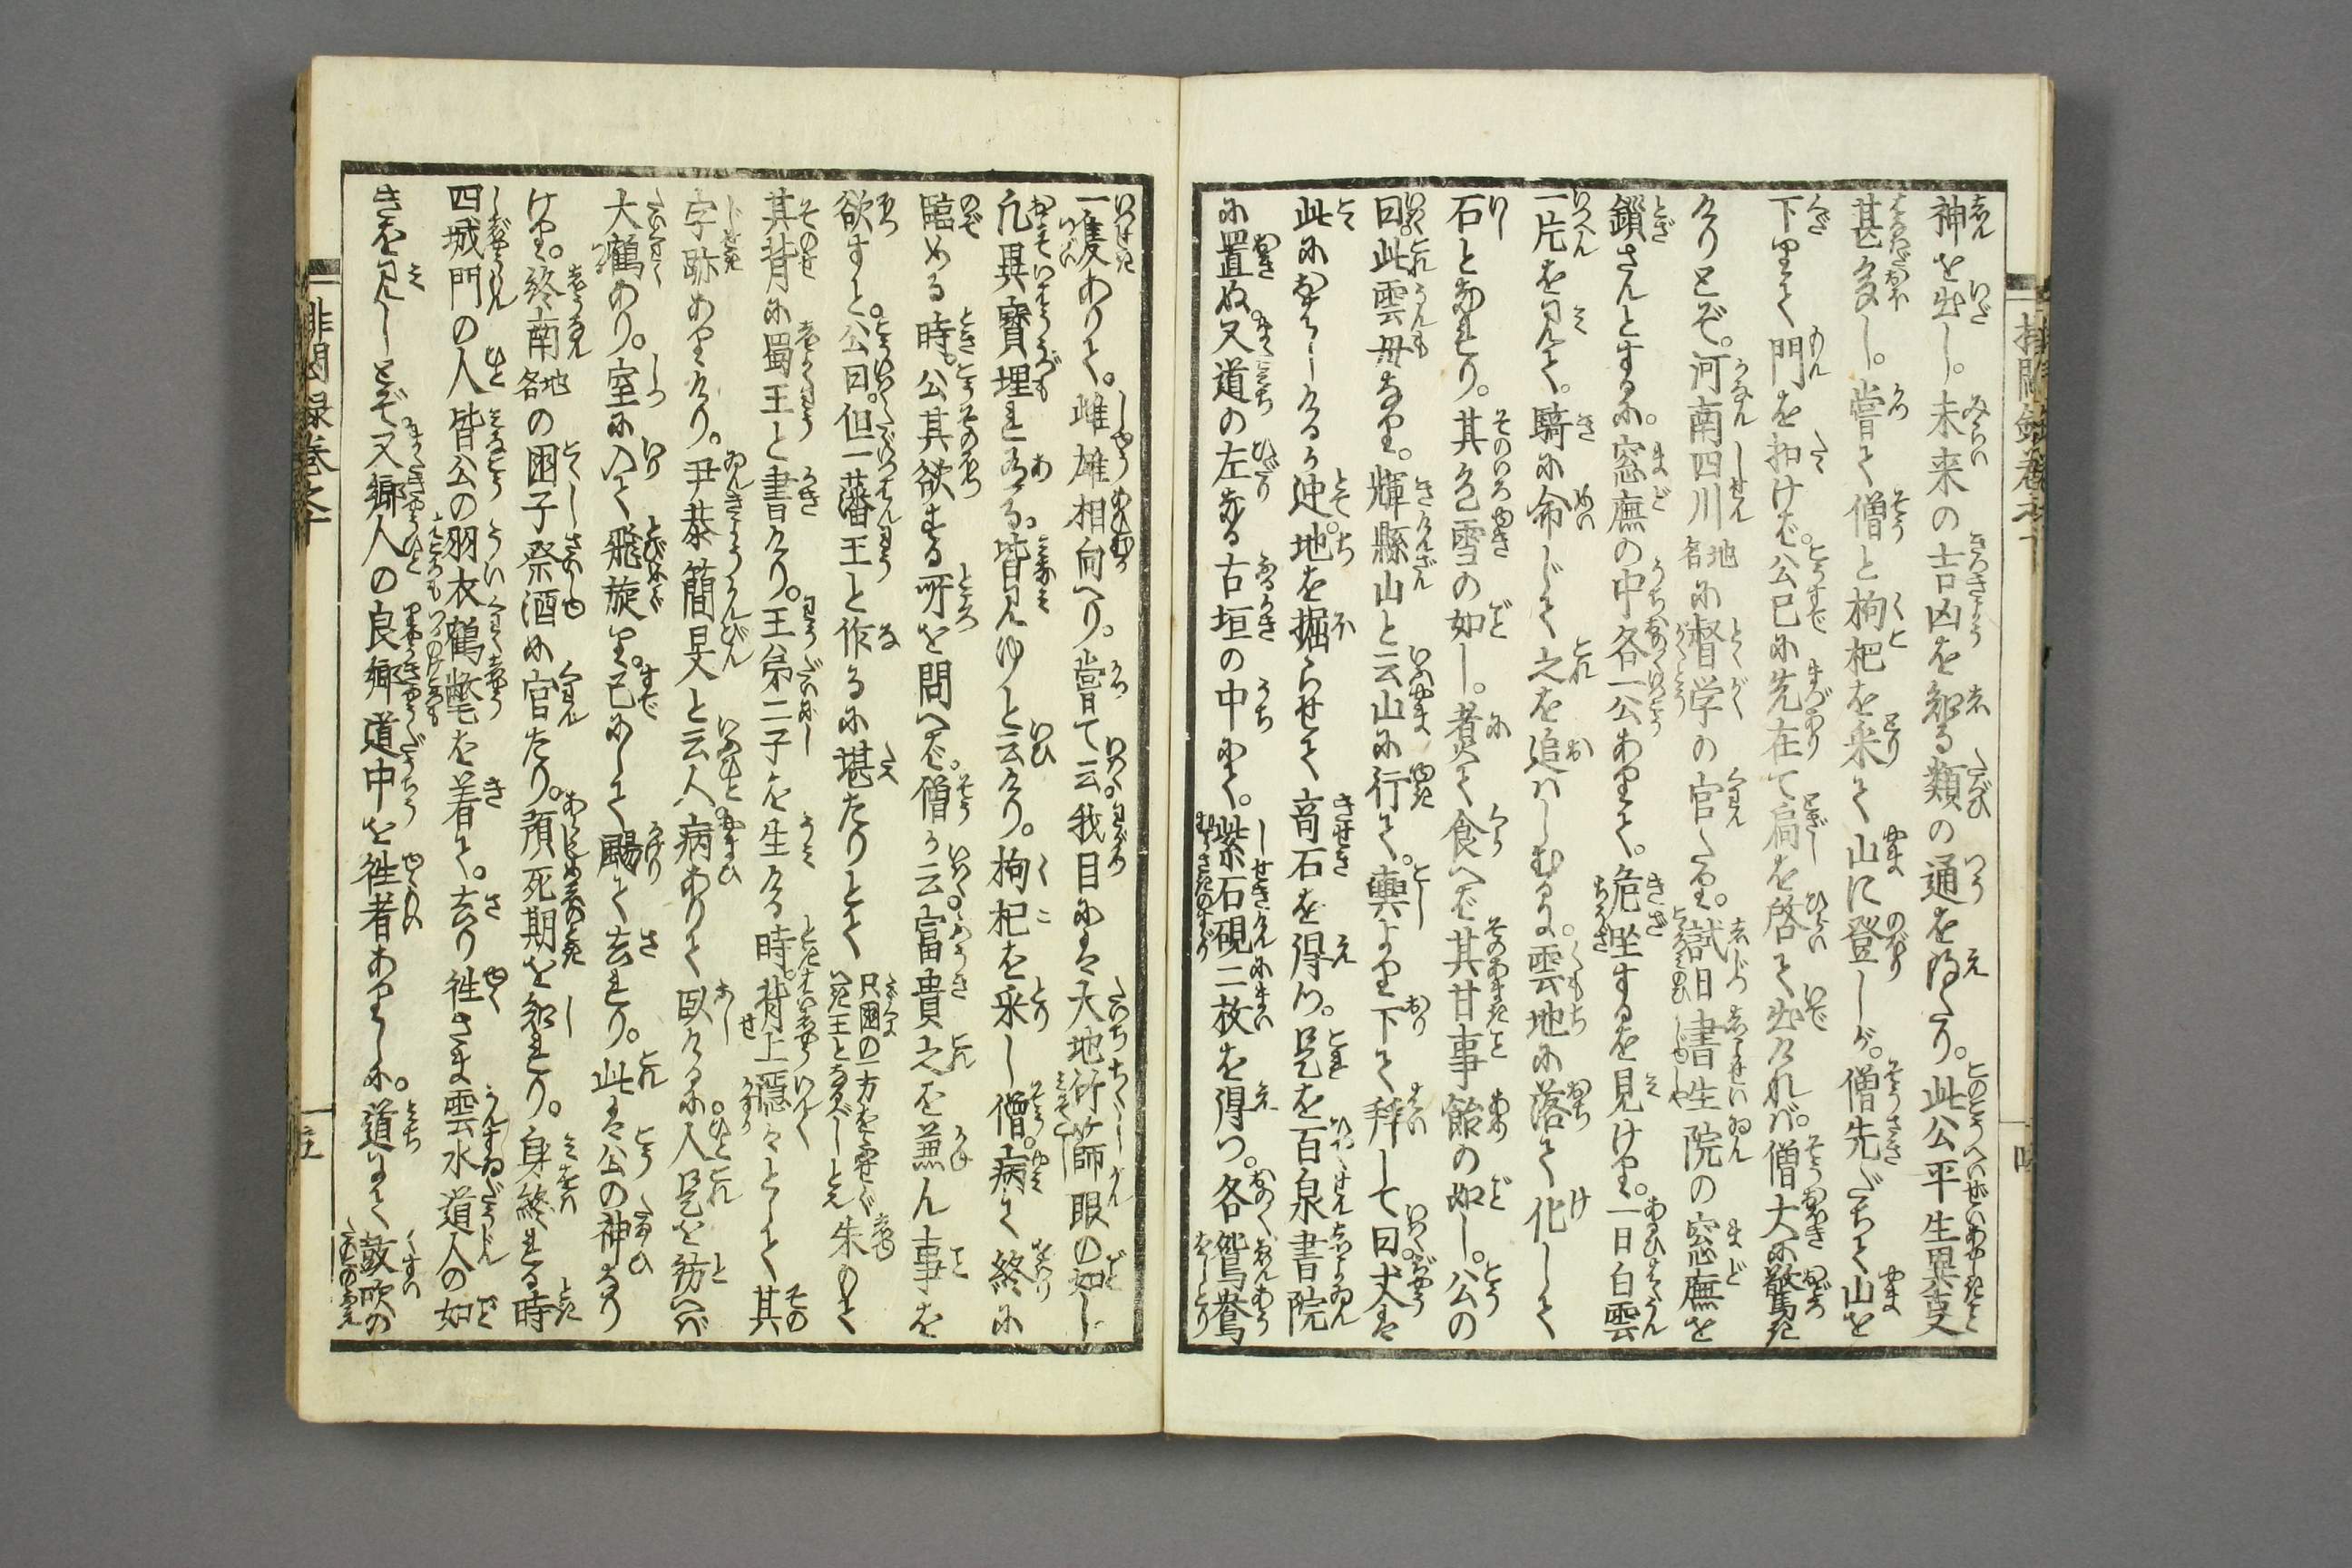 神を出し。未来の吉凶を知る類の通を得たり。此公平生異支
甚多し。嘗て僧と枸杞を采て山に登しが。僧先だちて山を
下りて門を扣けば。公已に先在て扃を啓て出ければ。僧大に驚き
けりとぞ。河南四川地名に督学の官たり。試日書生院の窓廡を
鎖さんとするに。窓廡の中各一公ありて。危坐するを見けり。一日白雲
一片を見て。騎に命じて之を追ハしむるに。雲地に落て化して
石となれり。其色雪の如し。煮て食へば其甘事飴の如し。公の
曰。此雲母なり。輝縣山と云山に行て。輿より下て拜して曰。丈は
此におはしけるか迚。地を掘らせて奇石を得つ。是を百泉書院
に置ぬ。又道の左なる古垣の中にて。紫石硯二枚を得つ。各鴛鴦
一隻ありて。雌雄相向へり。嘗て云我目には大地竹篩眼の如し
凡異寶埋れある。皆見ゆと云けり。枸杞を采し僧。病て終に
臨める時。公其欲する所を問へば。僧が云富貴之を兼ん事を
欲すと。公曰。但一藩王と作るに堪たりとて 只國の一方をふせぐ  べき王となるべしとぞ 朱もて
其背に蜀王と書けり。王第二子を生ける時。背上隠々として其
字跡ありけり。尹恭簡旻と云人。病ありて臥けるに。人是を訪へバ
大鶴あり。室に入て飛旋り。已にして颺て去れり。此は公の神なり
けり。終南地名の国子祭酒に官たり。預死期を知れり。身終れる時
四城門の人皆公の羽衣鶴氅を着て。去り徃さま雲水道人の如
きを見しとぞ又郷人の良郷道中を徃者ありしに。道にて鼓吹の
排悶録巻之十